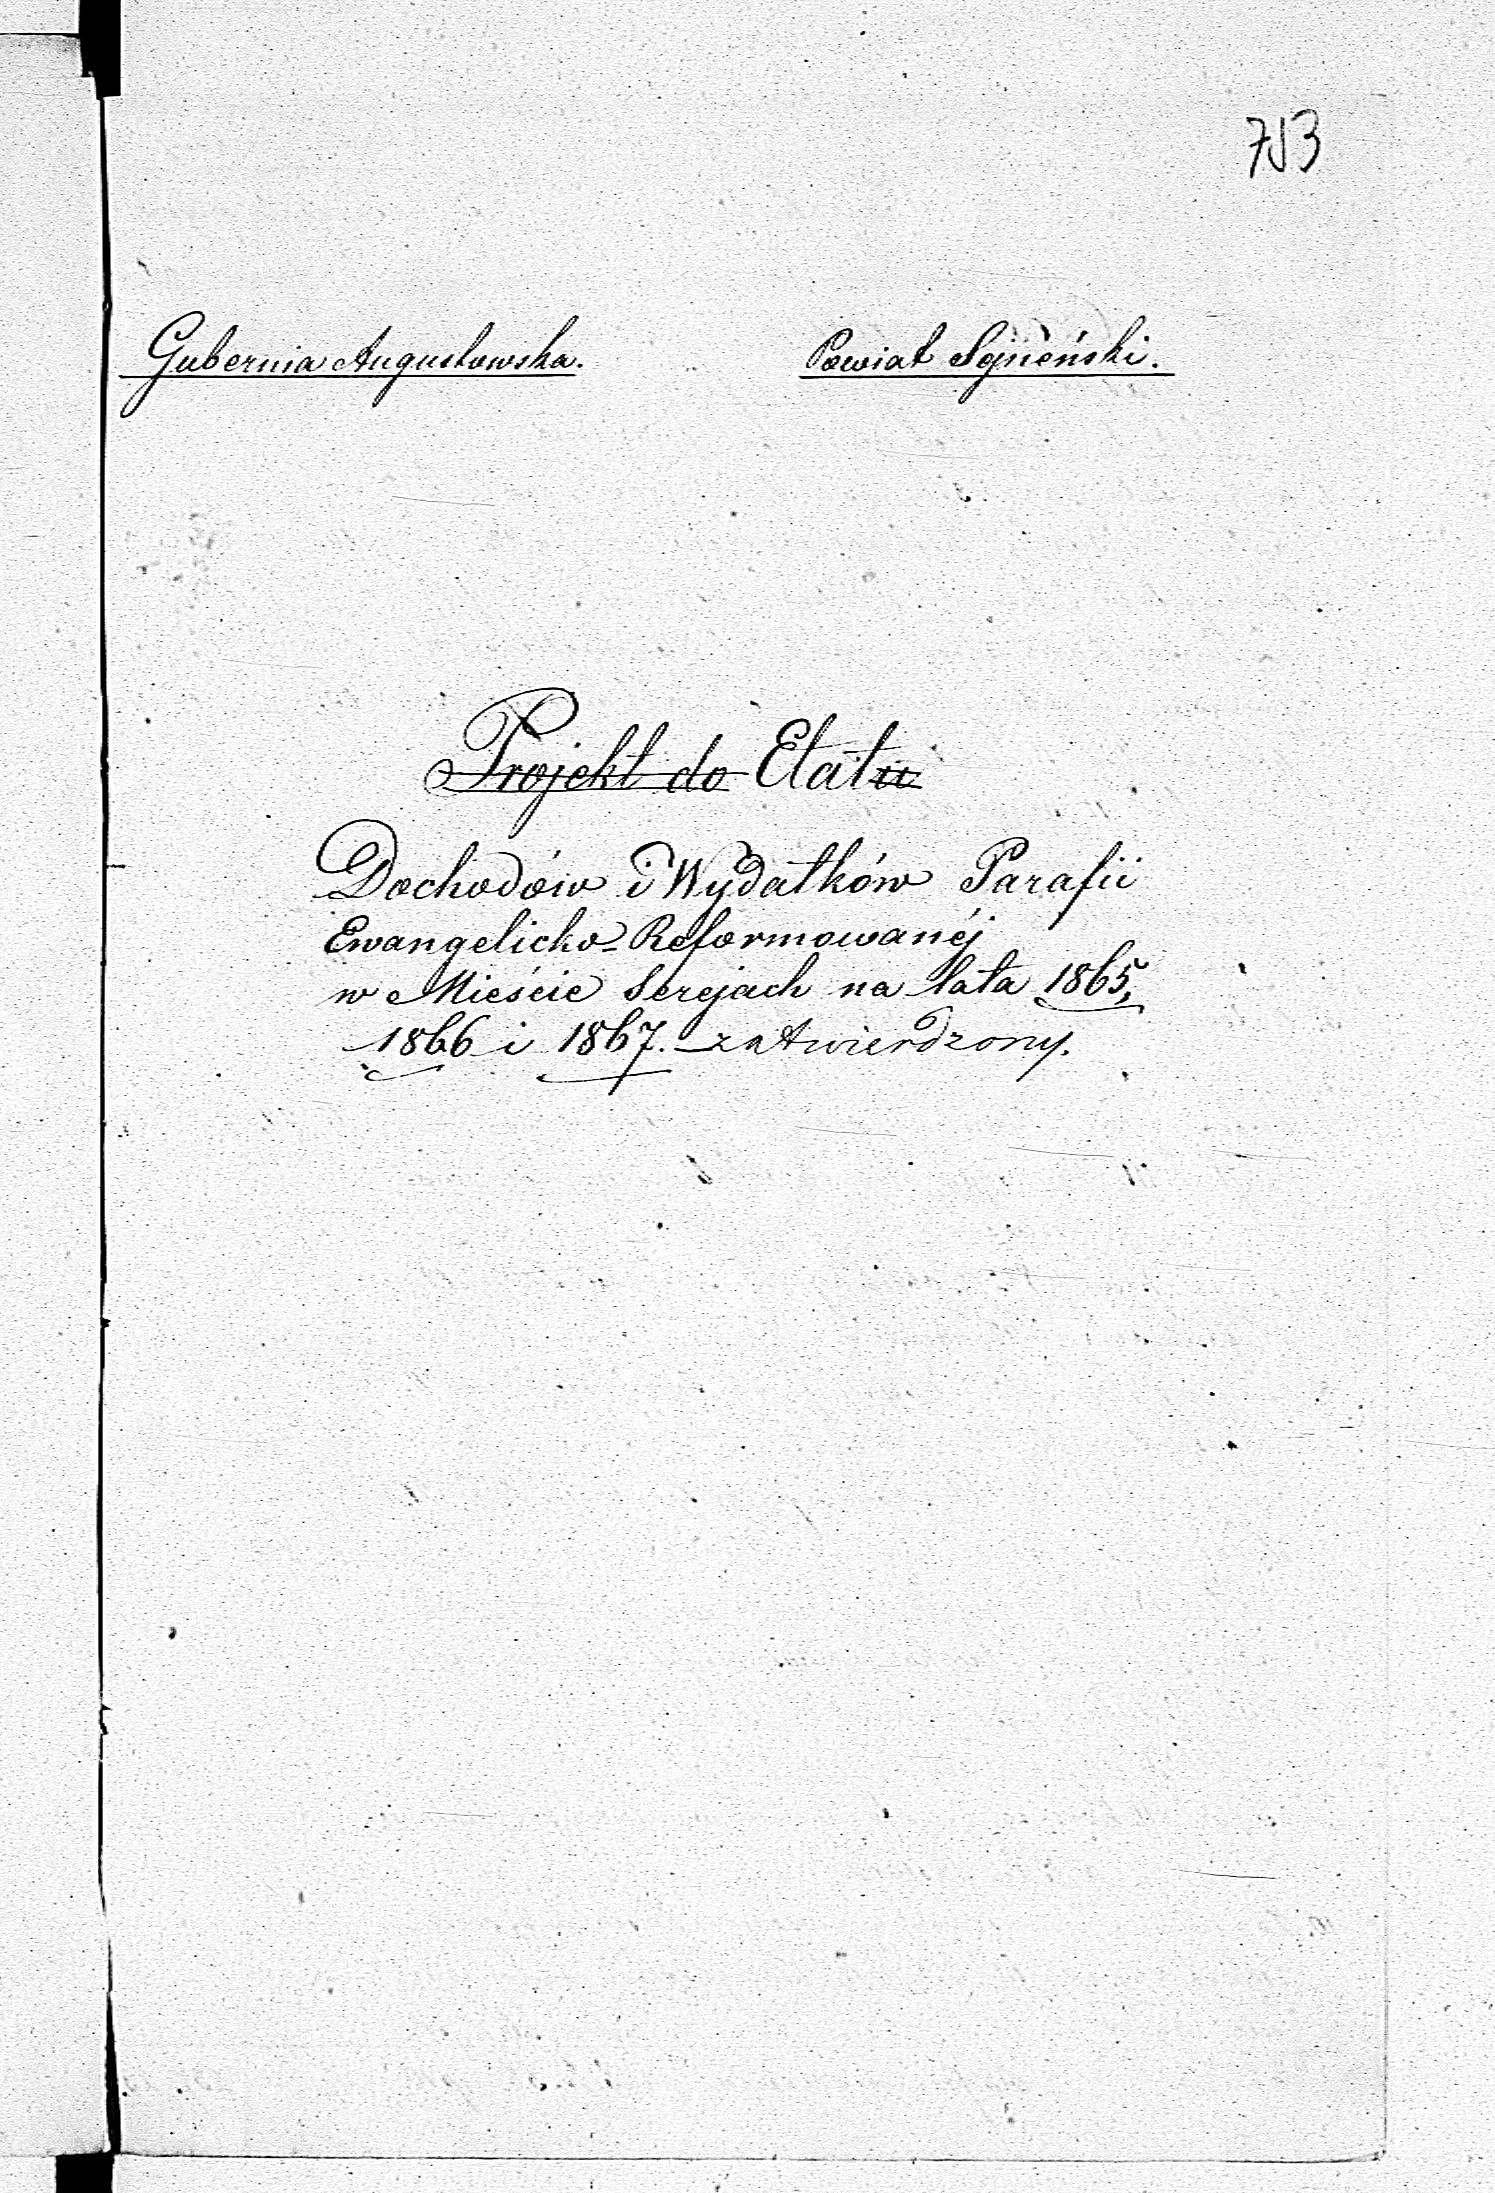 753
Gubernia Augustowska. Powiat Sejneński.
Projekt do Etatu
Dochodów i Wydatków Parafii
Ewangelicko-Reformowanéj
w Mieście Serejach na lata 1865,
1866 i 1867. zatwierdzony.